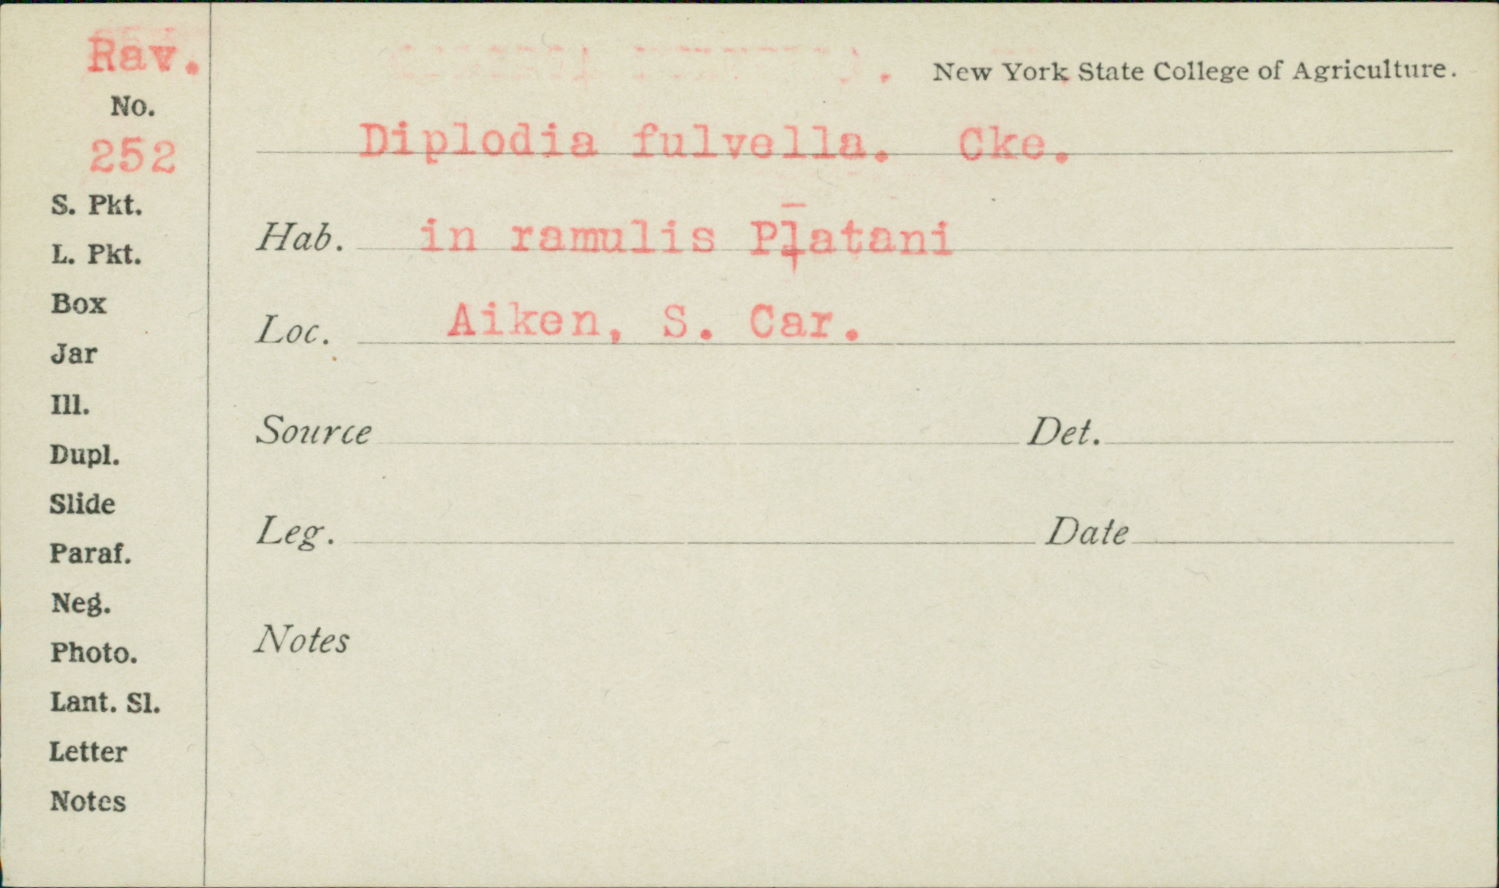 Rav.
No.
252
S. Pkt.
L. Pkt.
Box
Jar
Ill.
Dupl.
Slide
Paraf.
Neg.
Photo.
Lant. Sl.
Letter
Notes
New York State College of Agriculture.
Diplodia fulvella. Cke.
Hab. in ramulis Platani
Loc. Aiken, S. Car.
Source Det.
Leg. Date
Notes